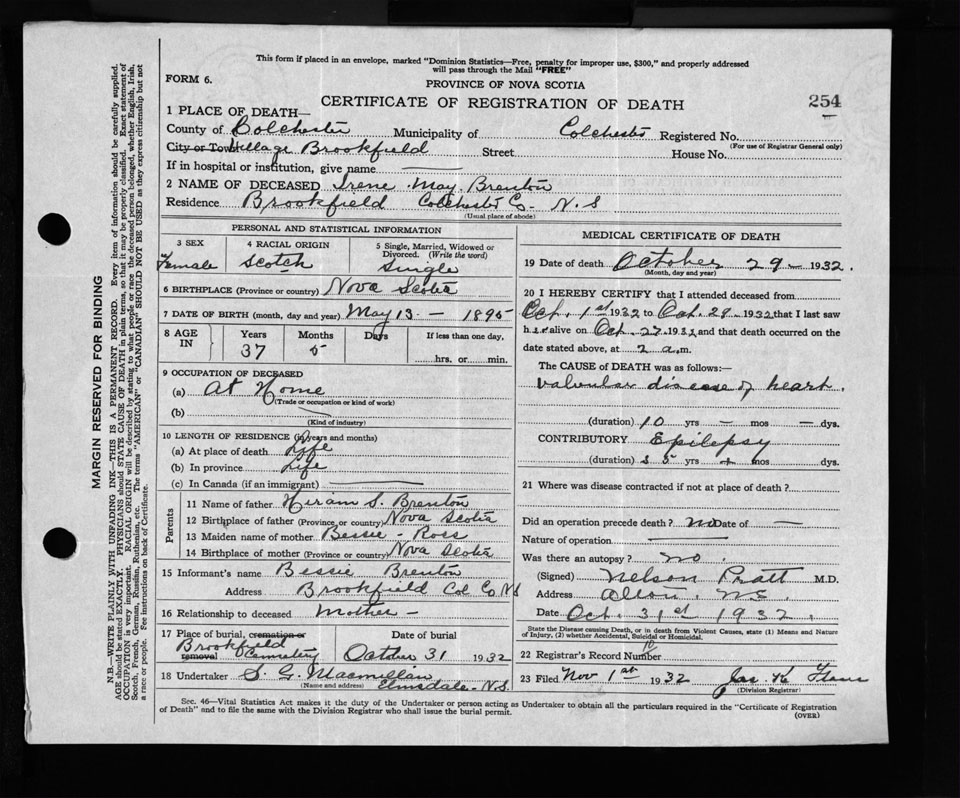 This form if placed in an envelope, marked "Dominion Statistics—Free, penalty for improper use, $300," and properly addressed
will pass through the Mail "FREE"
FORM 6.
PROVINCE OF NOVA SCOTIA
CERTIFICATE OF REGISTRATION OF DEATH
254
1 PLACE OF DEATH—
County of Colchester Municipality of Colchester Registered No.
(For use of Registrar General only)
City or Town Village Brookfield Street House No.
If in hospital or institution, give name —
2 NAME OF DECEASED Irene May Brenton
Residence Brookfield Colchester Co. N.S
(Usual place of abode)
PERSONAL AND STATISTICAL INFORMATION
3 SEX 4 RACIAL ORIGIN 5 Single, Married, Widowed or Divorced. (Write the word)
Female Scotch Single
6 BIRTHPLACE (Province or country) Nova Scotia
7 DATE OF BIRTH (month, day and year) May 13 — 1895
8 AGE IN Years Months Days If less than one day,
37 5 hrs. or min.
9 OCCUPATION OF DECEASED
(a) At Home
(Trade or occupation or kind of work)
(b) —
(Kind of industry)
10 LENGTH OF RESIDENCE (in years and months)
(a) At place of death Life
(b) In province Life
(c) In Canada (if an immigrant) —
Parents
11 Name of father Hiram S. Brenton
12 Birthplace of father (Province or country) Nova Scotia
13 Maiden name of mother Bessie - Ross
14 Birthplace of mother (Province or country) Nova Scotia
15 Informant's name Bessie Brenton
Address Brookfield Col Co NS
16 Relationship to deceased Mother —
17 Place of burial, cremation or removal Date of burial
Brookfield Cemetery October 31 1932
18 Undertaker S. G. Macmillan
(Name and address) Elmsdale - N.S.
MEDICAL CERTIFICATE OF DEATH
19 Date of death October 29 — 1932.
(Month, day and year)
20 I HEREBY CERTIFY that I attended deceased from
Oct. 1st 1932 to Oct. 29 1932 that I last saw
her alive on Oct. 27 1932 and that death occurred on the
date stated above, at 2 a.m.
The CAUSE of DEATH was as follows:—
Valvular disease of heart.
(duration) 10 yrs — mos — dys.
CONTRIBUTORY Epilepsy
(duration) yrs mos dys.
21 Where was disease contracted if not at place of death?
Did an operation precede death? no Date of —
Nature of operation —
Was there an autopsy? no.
(Signed) Nelson Pratt M.D.
Address N.S.
Date Oct. 31st 1932.
State the Disease causing Death, or in death from Violent Causes, state (1) Means and Nature
of Injury, (2) whether Accidental, Suicidal or Homicidal.
22 Registrar's Record Number
23 Filed Nov 1st 1932 Jas. H
(Division Registrar)
Sec. 46—Vital Statistics Act makes it the duty of the Undertaker or person acting as Undertaker to obtain all the particulars required in the "Certificate of Registration
of Death" and to file the same with the Division Registrar who shall issue the burial permit.
(OVER)
MARGIN RESERVED FOR BINDING
N.B.—WRITE PLAINLY WITH UNFADING INK—THIS IS A PERMANENT RECORD. Every item of information should be carefully supplied.
AGE should be stated EXACTLY. PHYSICIANS should STATE CAUSE OF DEATH in plain terms, so that it may be properly classified. Exact statement of
OCCUPATION is very important. RACIAL ORIGIN will be described by stating to what people or race the deceased person belonged, whether English, Irish,
Scotch, French, German, Russian, Ruthenian, etc. The terms "AMERICAN" or "CANADIAN" SHOULD NOT BE USED as they express citizenship but not
a race or people. See instructions on back of Certificate.